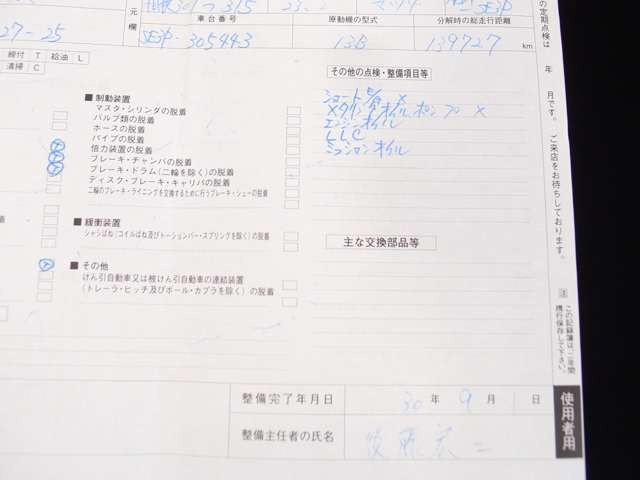 元
欄
車台番号
原動機の型式
分解時の総走行距離
27-25
SE3P-305443
13B
139727 km
締付 T 給油 L
清掃 C
その他の点検・整備項目等
■ 制動装置
マスタ・シリンダの脱着
バルブ類の脱着
ホースの脱着
パイプの脱着
倍力装置の脱着
ブレーキ・チャンバの脱着
ブレーキ・ドラム(二輪を除く)の脱着
ディスク・ブレーキ・キャリパの脱着
二輪のブレーキ・ライニングを交換するために行うブレーキ・シューの脱着
T
T
T
エンジンオイル
LLC
ミッションオイル
■ 緩衝装置
シャシばね(コイルばね及びトーションバー・スプリングを除く)の脱着
主な交換部品等
T
■ その他
けん引自動車又は被けん引自動車の連結装置
(トレーラ・ヒッチ及びボール・カプラを除く)の脱着
整備完了年月日
30 年 9 月 日
整備主任者の氏名
の定期点検は 年 月です。ご来店をお待ちしております。
注 この記録簿は、二年間携行保存して下さい。
使用者用